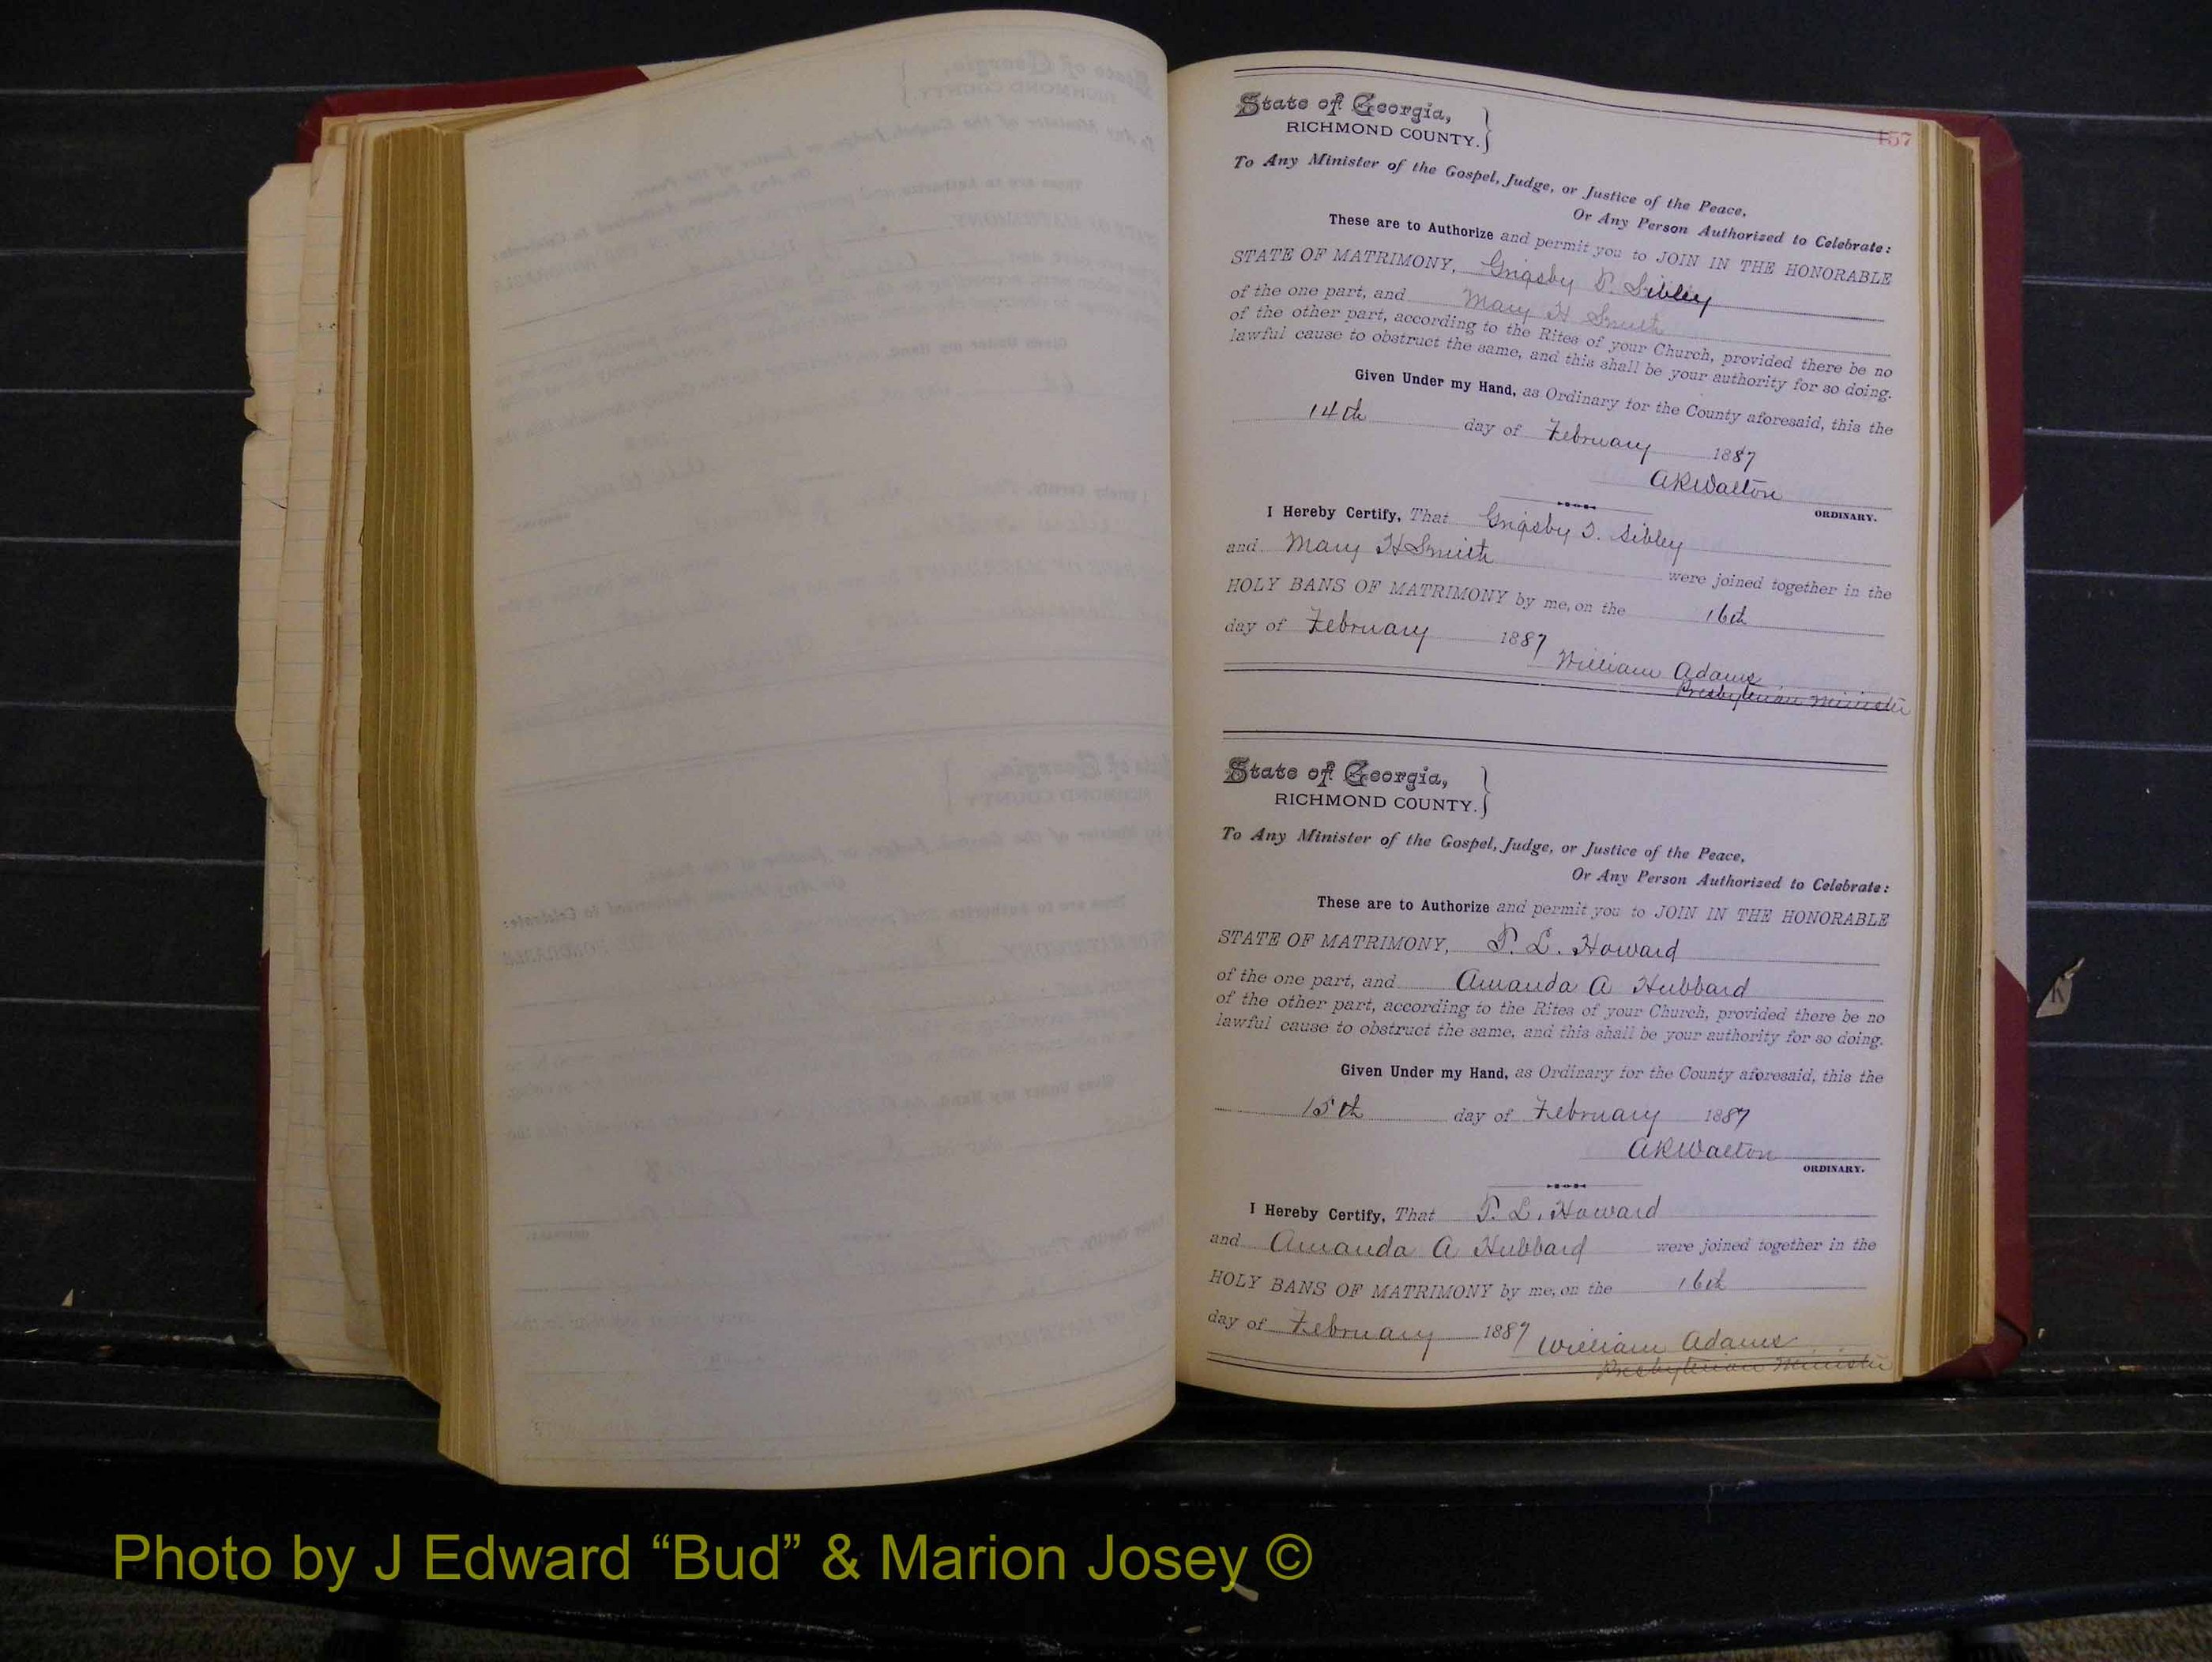 157
State of Georgia,
RICHMOND COUNTY.
To Any Minister of the Gospel, Judge, or Justice of the Peace,
Or Any Person Authorized to Celebrate:
These are to Authorize and permit you to JOIN IN THE HONORABLE
STATE OF MATRIMONY, Grigsby T. Sibley
of the one part, and Mary H Smith
of the other part, according to the Rites of your Church, provided there be no
lawful cause to obstruct the same, and this shall be your authority for so doing.
Given Under my Hand, as Ordinary for the County aforesaid, this the
14th day of February 1887
AKWalton
ORDINARY.
I Hereby Certify, That Grigsby T. Sibley
and Mary H Smith were joined together in the
HOLY BANS OF MATRIMONY by me, on the 16th
day of February 1887
William Adams
Presbyterian Minister
State of Georgia,
RICHMOND COUNTY.
To Any Minister of the Gospel, Judge, or Justice of the Peace,
Or Any Person Authorized to Celebrate:
These are to Authorize and permit you to JOIN IN THE HONORABLE
STATE OF MATRIMONY, P. L. Howard
of the one part, and Amanda A Hubbard
of the other part, according to the Rites of your Church, provided there be no
lawful cause to obstruct the same, and this shall be your authority for so doing.
Given Under my Hand, as Ordinary for the County aforesaid, this the
15th day of February 1887
AKWalton
ORDINARY.
I Hereby Certify, That P. L. Howard
and Amanda A Hubbard were joined together in the
HOLY BANS OF MATRIMONY by me, on the 16th
day of February 1887 William Adams
Presbyterian Minister
Photo by J Edward “Bud” & Marion Josey ©